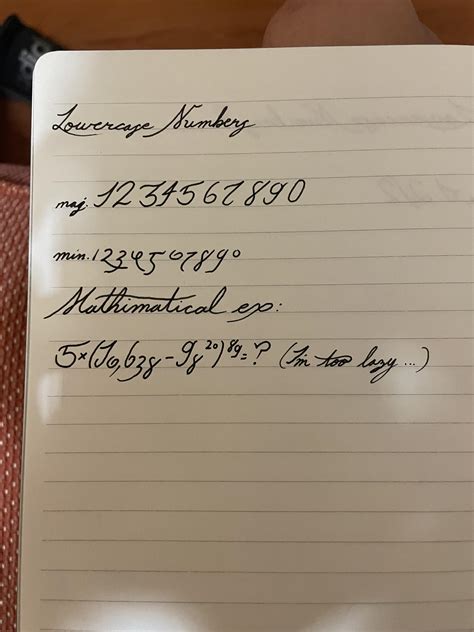 Lowercase Numbers
maj. 1234567890
min. 1234567890
Mathimatical ex:
5×(16,638-98²⁰)⁸⁹=? (I'm too lazy...)